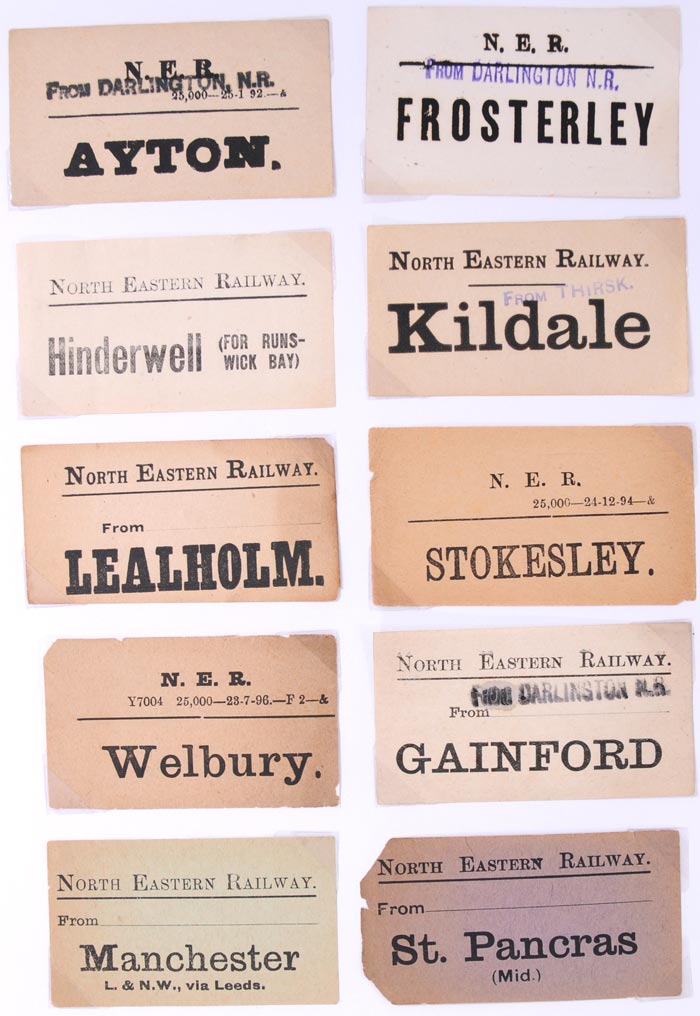 N. E. R.
FROM DARLINGTON, N.R.
25,000—25-1 92.—&
AYTON.
N. E. R.
FROM DARLINGTON N.R.
FROSTERLEY
NORTH EASTERN RAILWAY.
Hinderwell (FOR RUNS-
WICK BAY)
NORTH EASTERN RAILWAY.
FROM THIRSK.
Kildale
NORTH EASTERN RAILWAY.
From
LEALHOLM.
N. E. R.
25,000—24-12-94—&
STOKESLEY.
N. E. R.
Y7004 25,000—23-7-96.—F 2—&
Welbury.
NORTH EASTERN RAILWAY.
FROM DARLINGTON N.R.
From
GAINFORD
NORTH EASTERN RAILWAY.
From
Manchester
L. & N.W., via Leeds.
NORTH EASTERN RAILWAY.
From
St. Pancras
(Mid.)